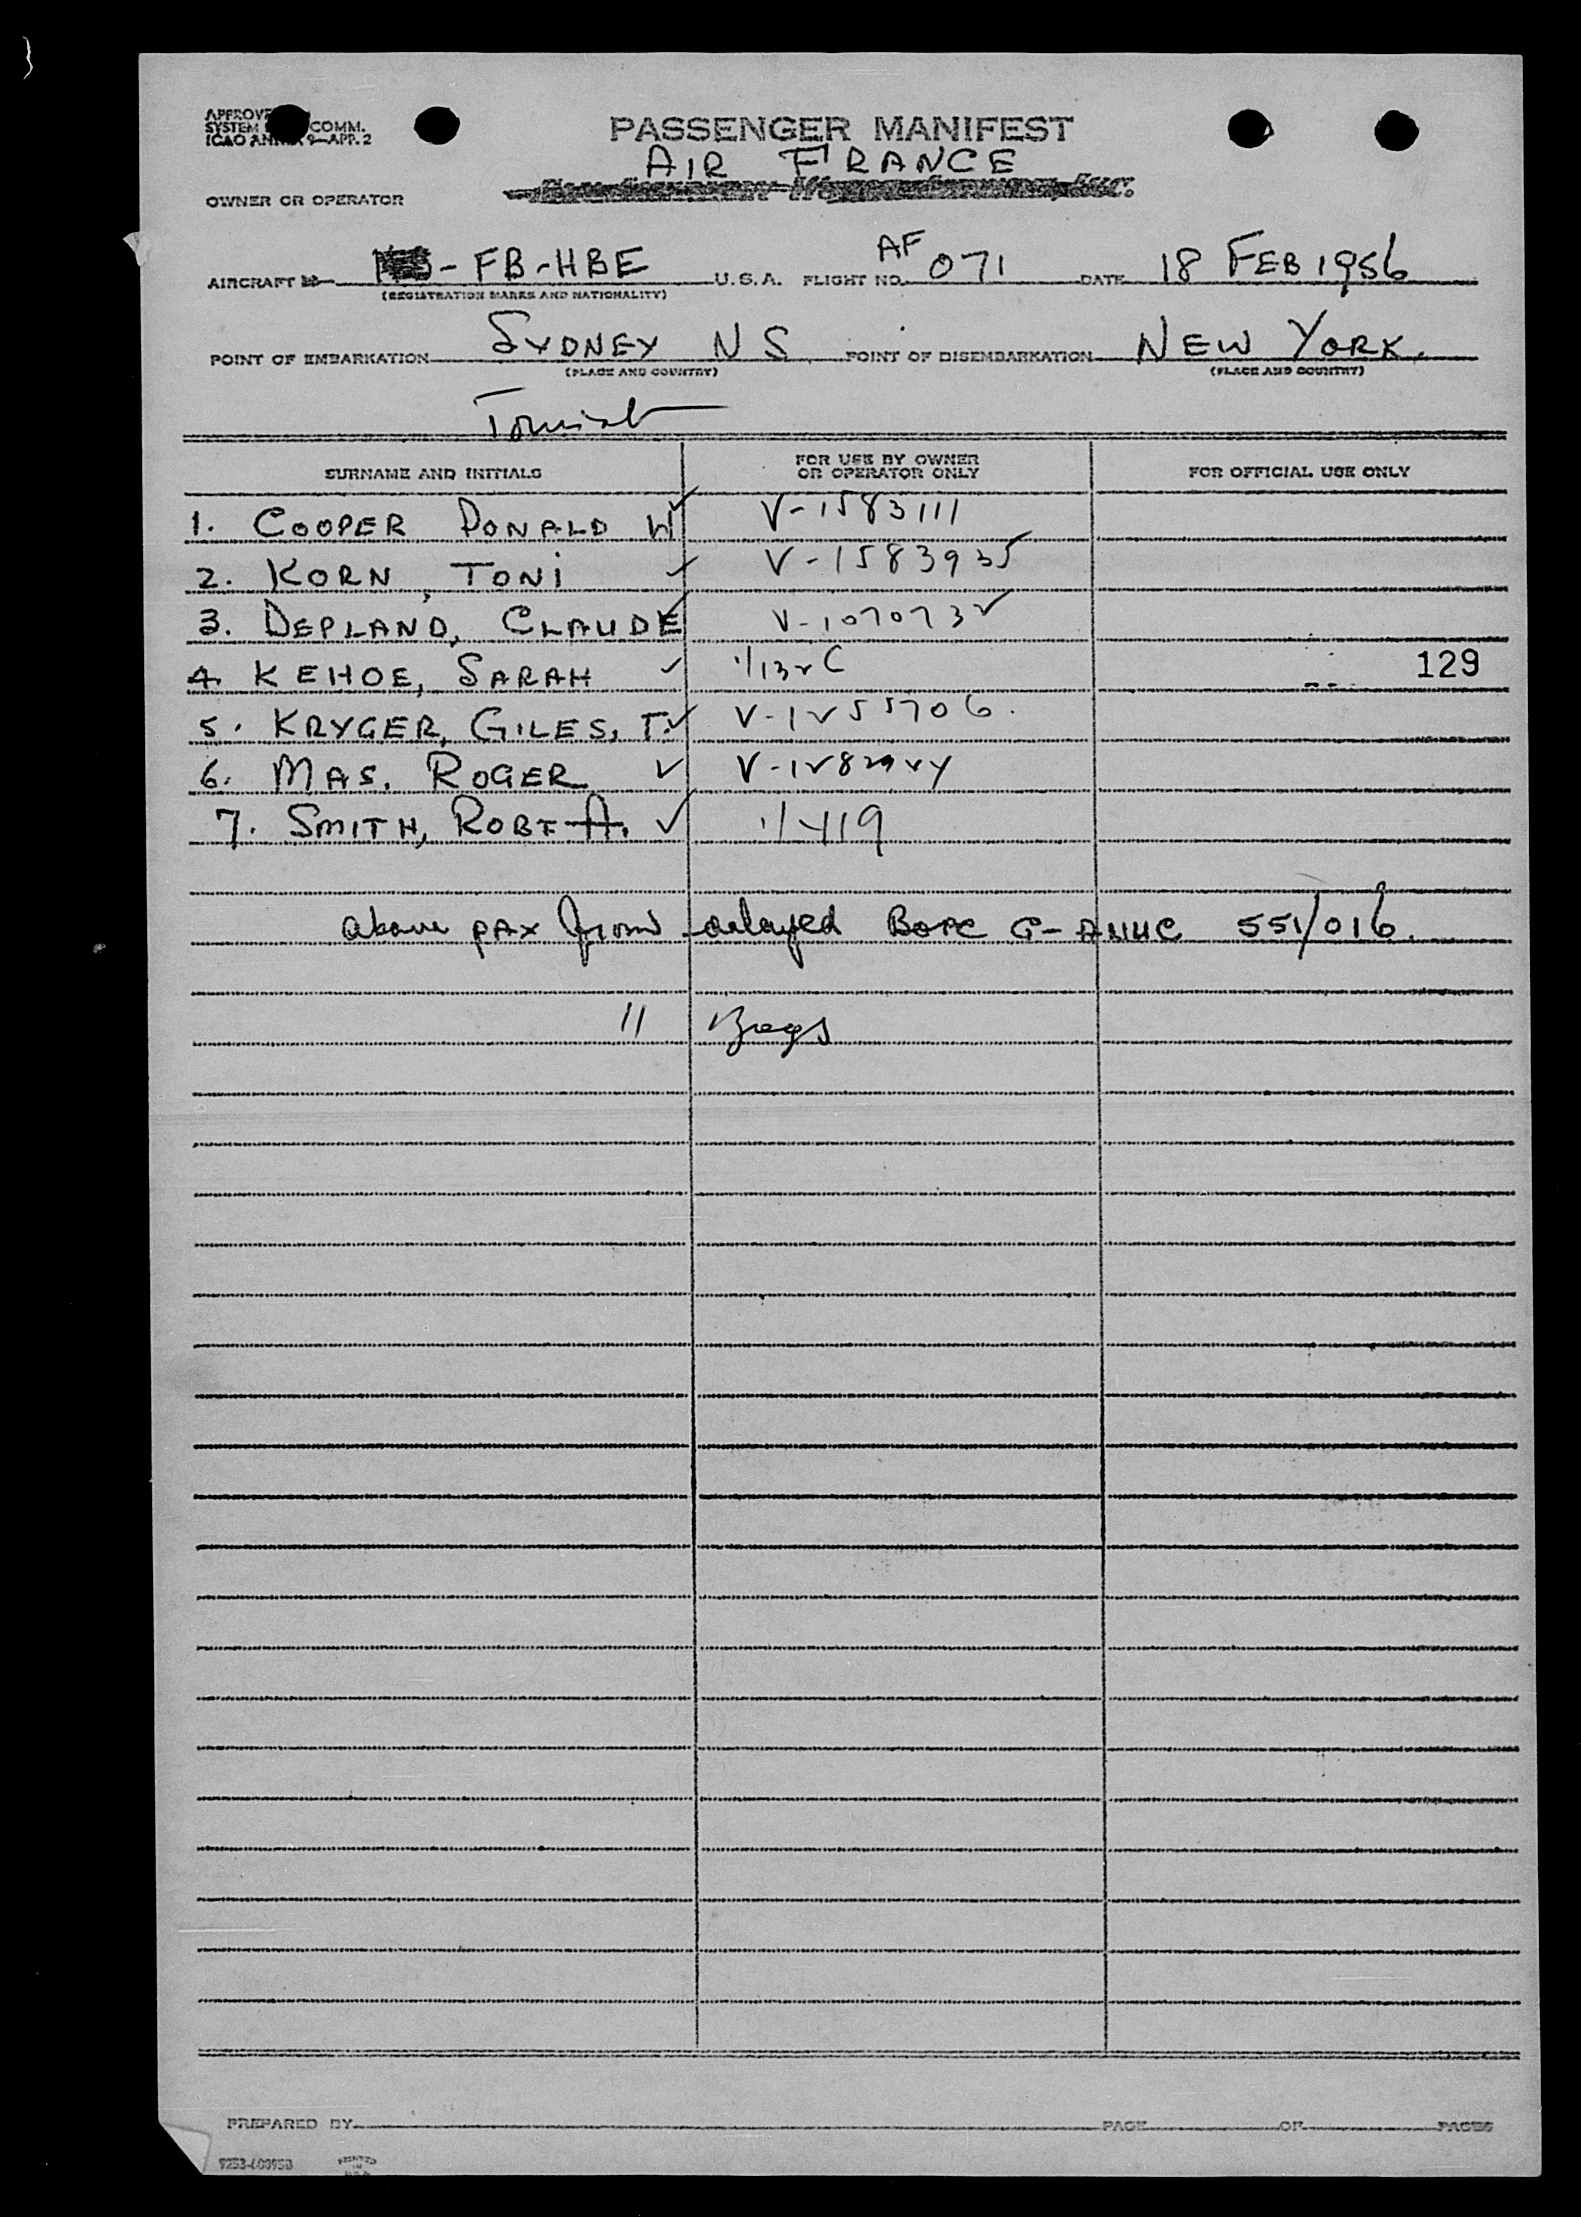 PASSENGER MANIFEST
AIR FRANCE
OWNER OR OPERATOR
AIRCRAFT - FB-HBE U.S.A. FLIGHT NO. AF 071 DATE 18 FEB 1956
(REGISTRATION MARKS AND NATIONALITY)
POINT OF EMBARKATION SYDNEY NS POINT OF DISEMBARKATION NEW YORK.
(PLACE AND COUNTRY) (PLACE AND COUNTRY)
Tourist
SURNAME AND INITIALS FOR USE BY OWNER OR OPERATOR ONLY FOR OFFICIAL USE ONLY
1. COOPER DONALD W ✓ V-1583111
2. KORN, TONI ✓ V-1583935
3. DEPLAND, CLAUDE ✓ V-1070732
4. KEHOE, SARAH ✓ 129
5. KRYGER, GILES, T. ✓ V-1255706.
6. MAS, ROGER ✓
7. SMITH, ROBT A. ✓
above pax from delayed BOAC G- 551/016.
11 Bags
PREPARED BY PAGE OF PAGES
PRINTED IN U.S.A.